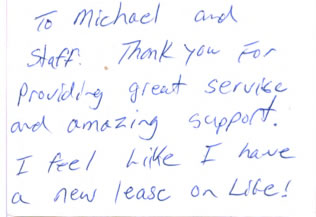 To Michael and
Staff. Thank you For
Providing great service
and amazing support.
I feel Like I have
a new lease on Life!